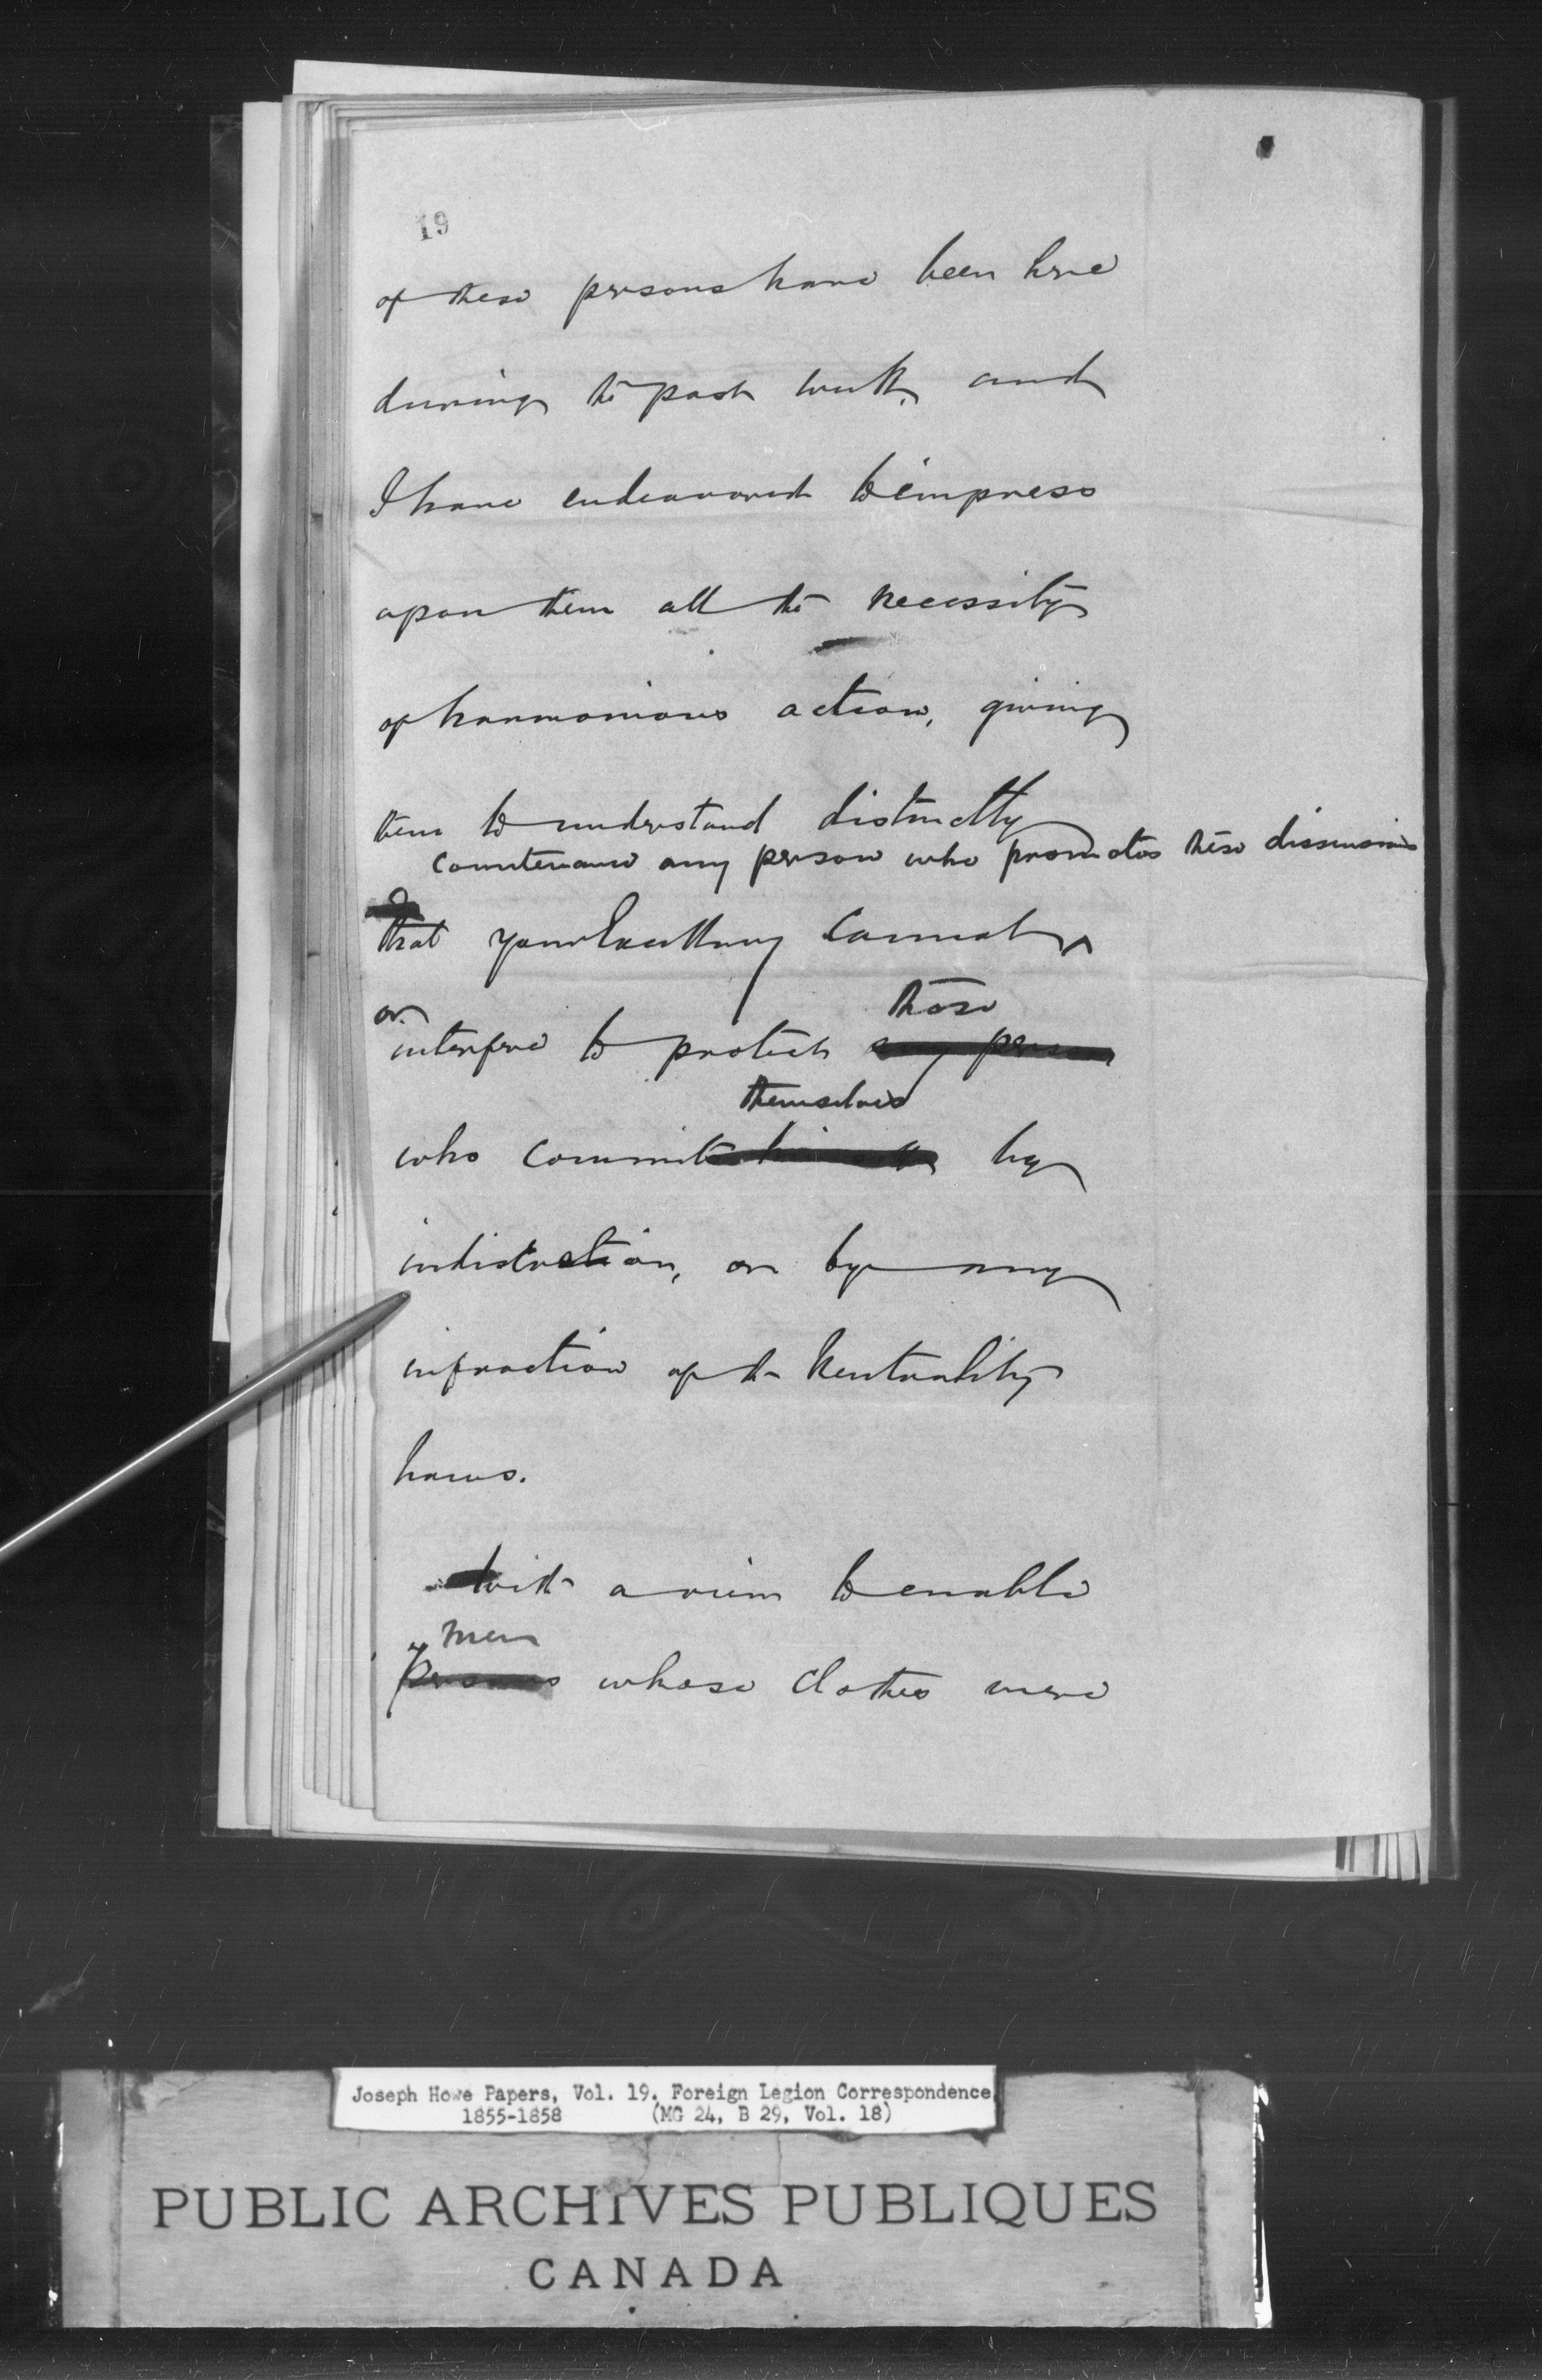 19
of these persons have been here
during the past week, and
I have endeavoured to impress
upon them all the necessity
of harmonious action, giving
them to understand distinctly
countenance any person who promotes these dissensions
that your Excellency cannot ^
those
or interfere to protect any person
themselves
who commit himself by
indiscretion, or by any
infraction of the Neutrality
Laws.
With a view to enable
men
persons whose clothes were
Joseph Howe Papers, Vol. 19. Foreign Legion Correspondence,
1855-1858 (MG 24, B 29, Vol. 18)
PUBLIC ARCHIVES PUBLIQUES
CANADA